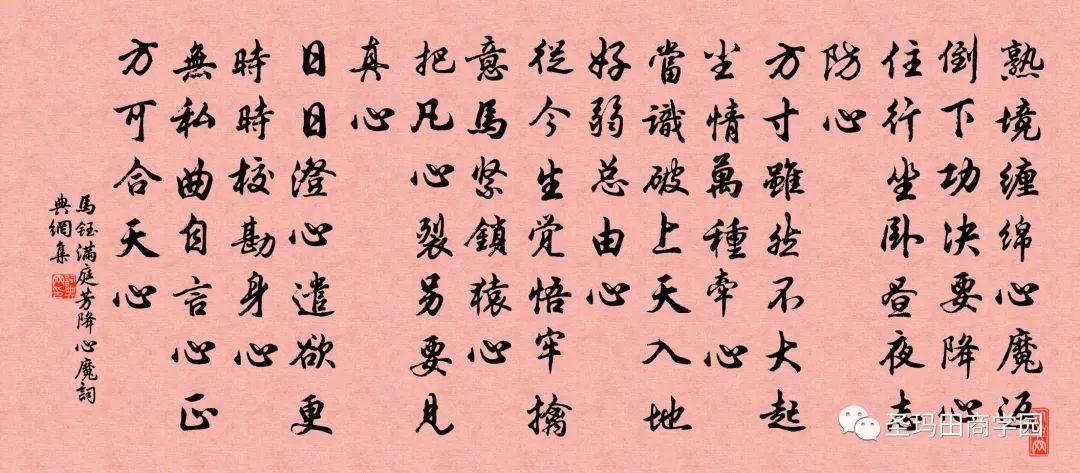 熟境缠绵心魔返
倒下功决要降心
住行坐卧昼夜志
防心
方寸雖然不大起
尘情萬種牽心
當識破上天入地
好弱总由心
従今生觉悟牢擒
意馬紧鎖猿心
把凡心裂另要见
真心
日日澄心遣欲更
時時校勘身心
無私曲自言心正
方可合天心
馬钰满庭芳降心魔詞
典網集
圣玛田商学园